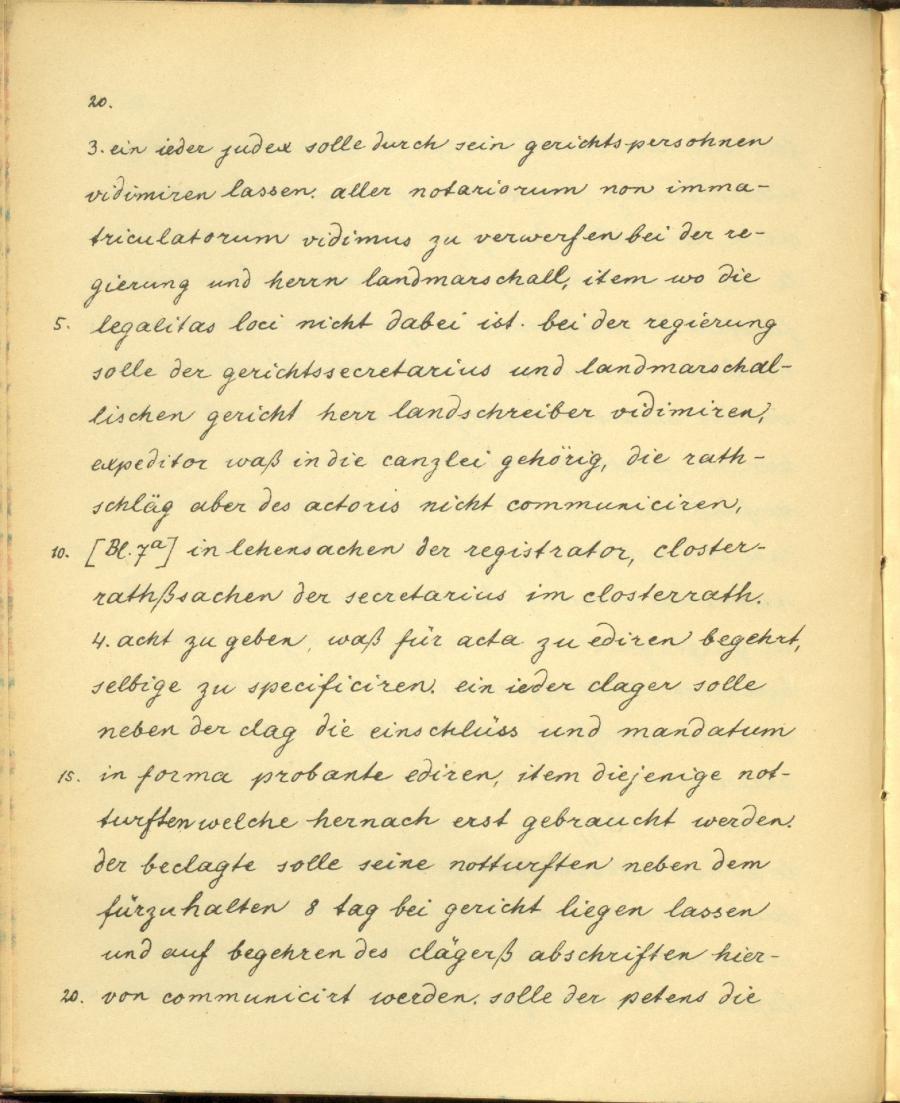 20.
3. ein ieder judex solle durch sein gerichtspersohnen
vidimiren lassen. aller notariorum non imma-
triculatorum vidimus zu verwerfen bei der re-
gierung und herrn landmarschall, item wo die
5. legalitas loci nicht dabei ist. bei der regierung
solle der gerichtssecretarius und landmarschal-
lischen gericht herr landschreiber vidimiren,
expeditor waß in die canzlei gehörig, die rath-
schläg aber des actoris nicht communiciren,
10. [Bl. 7a] in lehensachen der registrator, closter-
rathßsachen der secretarius im closterrath.
4. acht zu geben, waß für acta zu ediren begehrt,
selbige zu specificiren. ein ieder clager solle
neben der clag die einschlüss und mandatum
15. in forma probante ediren, item diejenige not-
turften welche hernach erst gebraucht werden.
der beclagte solle seine notturften neben dem
fürzuhalten 8 tag bei gericht liegen lassen
und auf begehren des clägerß abschriften hier-
20. von communicirt werden. solle der petens die